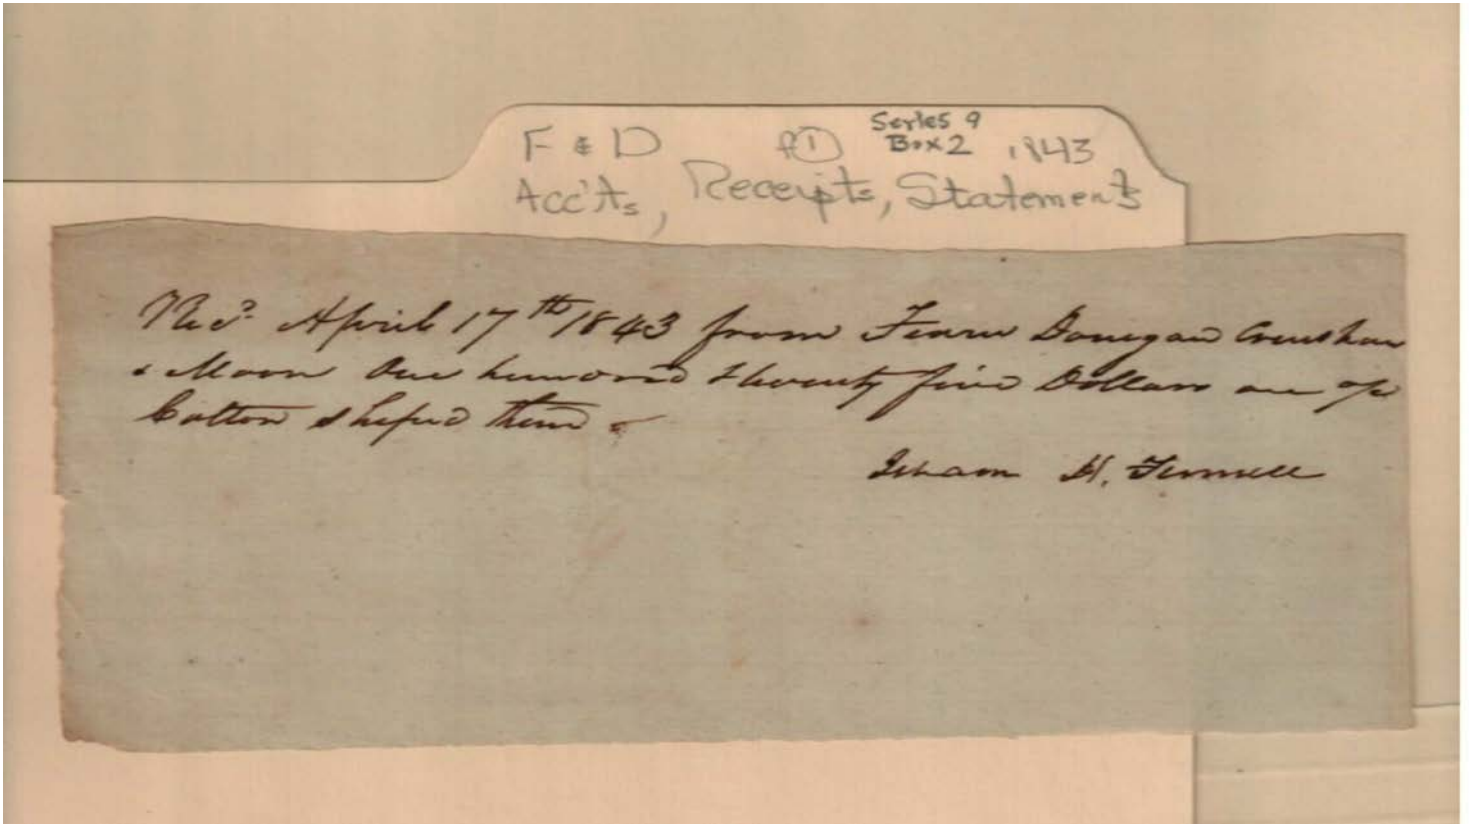 F & D f① Series 9 1843
Box 2
Acc'ts, Receipts, Statements
Recd. April 17th 1843 from Fearn Donegan Crenshaw
& Moon One hundred & twenty five Dollars on a/c
Cotton shiped them
Isham H. Fennell